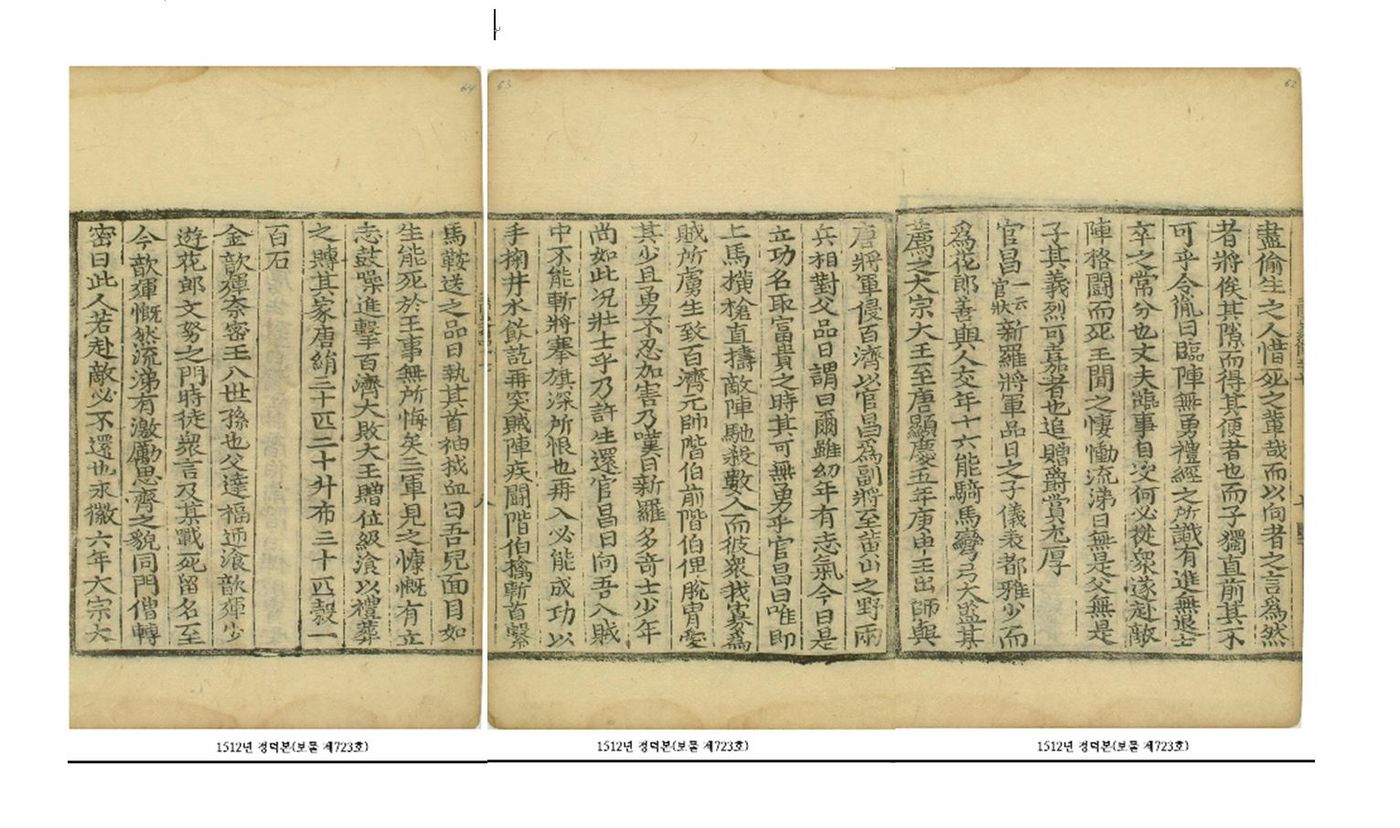 盡偷生之人惜死之輩哉而以向者之言爲然
者將俟其隙而得其便者也而子獨直前其不
可乎令胤曰臨陣無勇禮經之所識有進無退士
卒之常分也丈夫臨事自決何必從衆遂赴敵
陣格鬪而死王聞之悽慟流涕曰無是父無是
子其義烈可嘉者也追贈爵賞尤厚
官昌一云官狀新羅將軍品日之子儀表都雅少而
爲花郎善與人交年十六能騎馬彎弓大監某
薦之太宗大王至唐顯慶五年庚申王出師與
唐將軍侵百濟以官昌爲副將至黃山之野兩
兵相對父品日謂曰爾雖幼年有志氣今日是
立功名取富貴之時其可無勇乎官昌曰唯即
上馬橫槍直擣敵陣馳殺數人而彼衆我寡爲
賊所虜生致百濟元帥階伯前階伯俾脫冑愛
其少且勇不忍加害乃嘆曰新羅多奇士少年
尚如此况壯士乎乃許生還官昌曰向吾入賊
中不能斬將搴旗深所恨也再入必能成功以
手掬井水飮訖再突賊陣疾鬪階伯擒斬首繫
馬鞍送之品日執其首袖拭血曰吾兒面目如
生能死於王事無所悔矣三軍見之慷慨有立
志鼓噪進擊百濟大敗大王贈位級湌以禮葬
之賻其家唐絹三十匹二十升布三十匹穀一
百石
金歆運奈密王八世孫也父達福迊湌歆運少
遊花郎文努之門時徒衆言及某戰死留名至
今歆運慨然流涕有激勵思齊之貌同門僧轉
密曰此人若赴敵必不還也永徽六年大宗大
62
63
64
1512년 정덕본(보물 제723호)
1512년 정덕본(보물 제723호)
1512년 정덕본(보물 제723호)